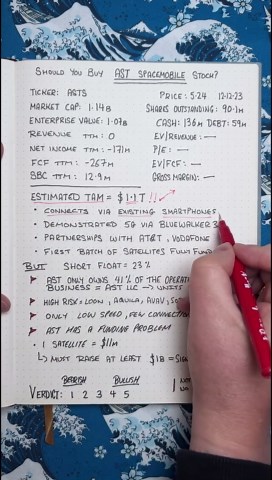 SHOULD YOU BUY AST SPACEMOBILE STOCK?
TICKER: ASTS
PRICE: 5.24 12.12.23
MARKET CAP: 1.14B
SHARES OUTSTANDING: 90.1M
ENTERPRISE VALUE: 1.07B
CASH: 136M DEBT: 59M
REVENUE TTM: 0
EV/REVENUE: —
NET INCOME TTM: -171M
P/E: —
FCF TTM: -267M
EV/FCF: —
SBC TTM: 12.9M
GROSS MARGIN: —
ESTIMATED TAM = $1.1T !!
• CONNECTS VIA EXISTING SMARTPHONES
• DEMONSTRATED 5G VIA BLUEWALKER 3
• PARTNERSHIPS WITH AT&T, VODAFONE
• FIRST BATCH OF SATELLITES FULLY
BUT: SHORT FLOAT = 23%
AST ONLY OWNS 41% OF THE
BUSINESS = AST LLC → UNITS
HIGH RISK = LOON, AQUILA,
ONLY LOW SPEED, FEW
AST HAS A FUNDING PROBLEM
• 1 SATELLITE = $11M
↳ MUST RAISE AT LEAST $1B =
BEARISH BULLISH
VERDICT: 1 2 3 4 5